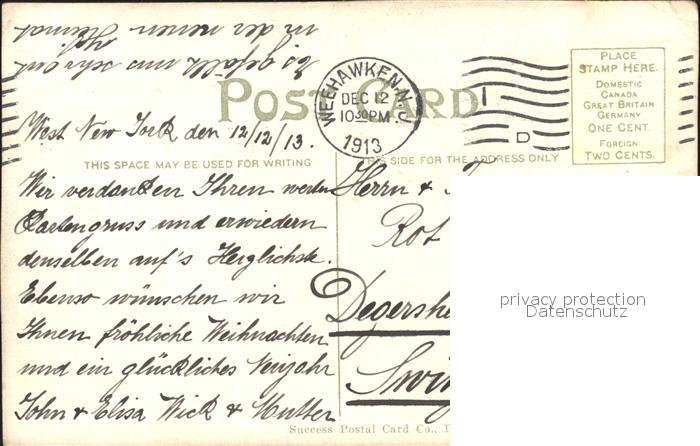 Es gefällt uns sehr gut
in der neuen Heimat
POST CARD
WEEHAWKEN, N.J.
DEC 12
10 30 PM
1913
D
PLACE
STAMP HERE.
DOMESTIC
CANADA
GREAT BRITAIN
GERMANY
ONE CENT.
FOREIGN:
TWO CENTS.
West New York den 12/12/13.
THIS SPACE MAY BE USED FOR WRITING
THIS SIDE FOR THE ADDRESS ONLY
Wir verdanken Ihren werten
Kartengruss und erwiedern
denselben auf's Herzlichste.
Ebenso wünschen wir
Ihnen fröhliche Weihnachten
und ein glückliches Neujahr
John & Elisa Wick & Mutter
Herrn &
Rot
Degershe
Swi
privacy protection
Datenschutz
Success Postal Card Co.,